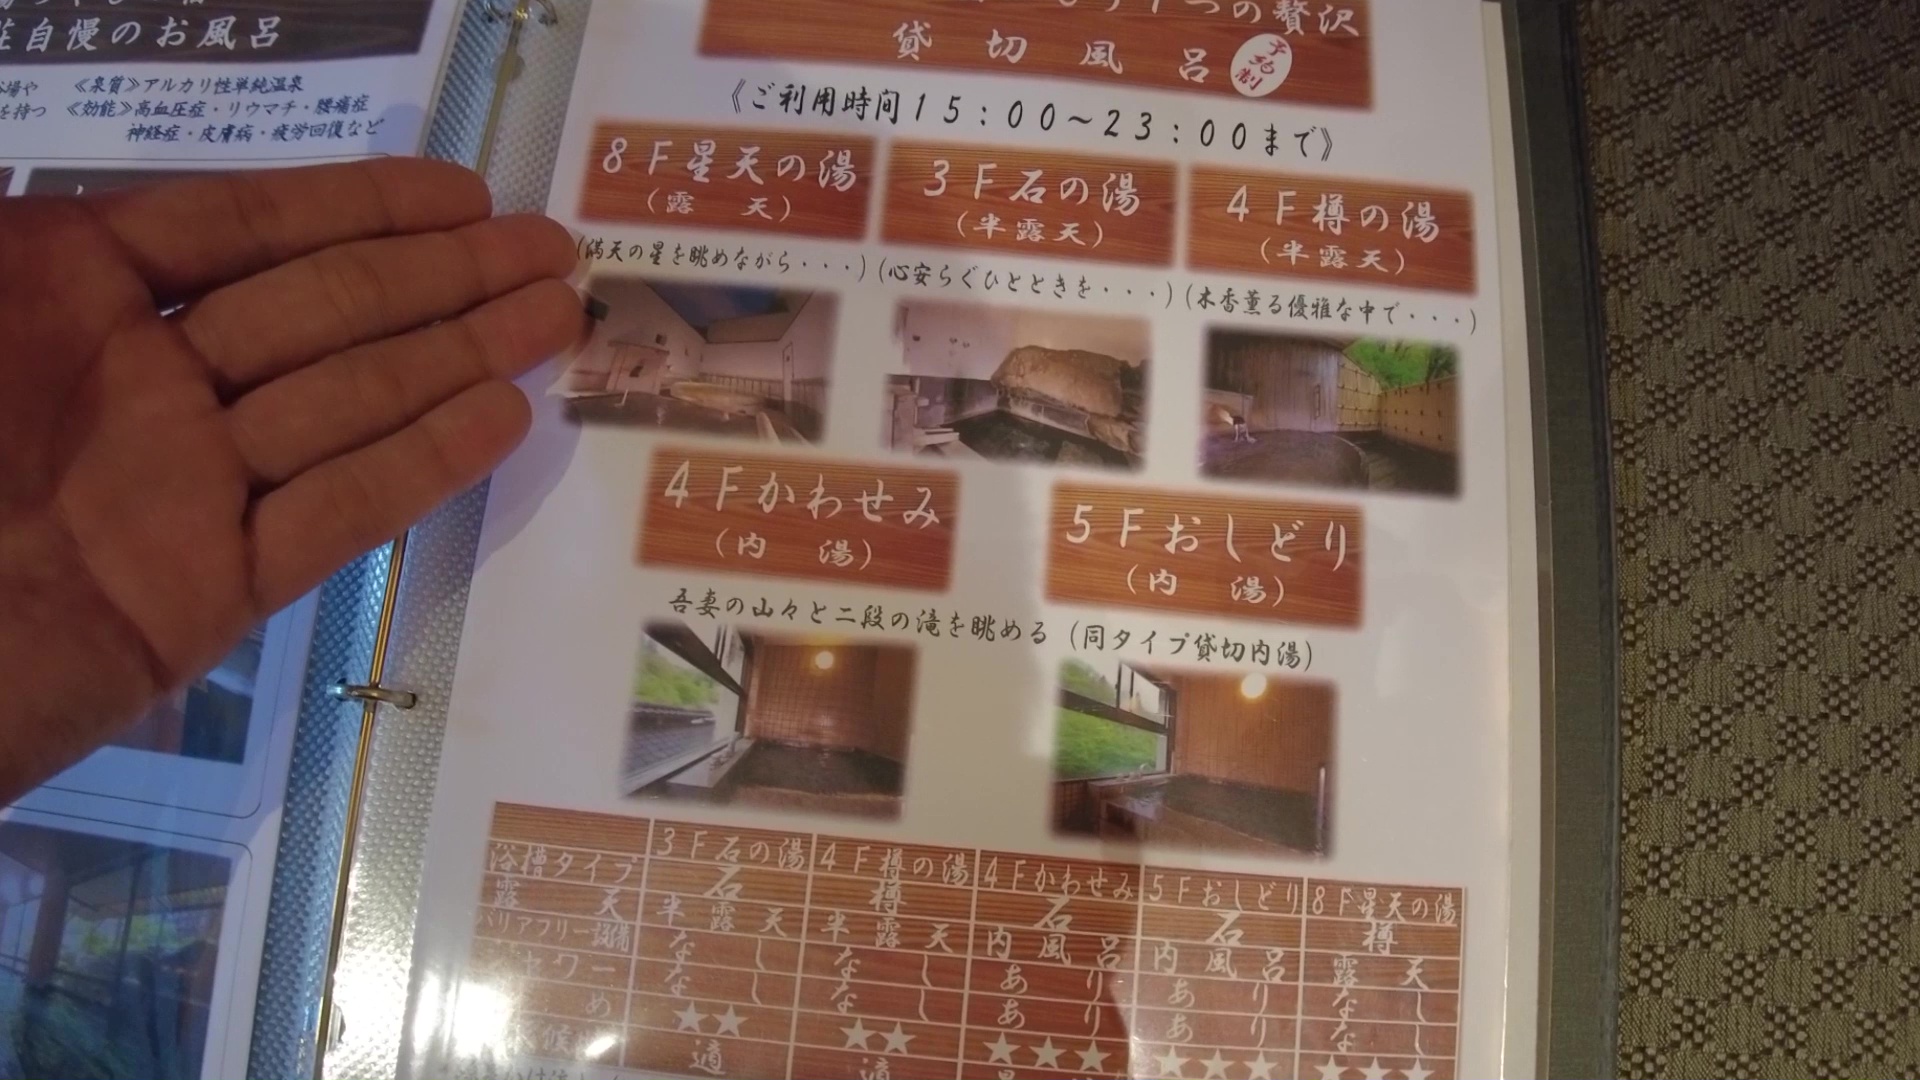 自慢のお風呂
《泉質》アルカリ性単純温泉
を持つ 《効能》高血圧症・リウマチ・腰痛症
神経症・皮膚病・疲労回復など
つの贅沢
貸切風呂 予約制
《ご利用時間15:00~23:00まで》
8F星天の湯 3F石の湯 4F樽の湯
(露 天) (半露天) (半露天)
(満天の星を眺めながら・・・) (心安らぐひとときを・・・) (木香薫る優雅な中で・・・)
4Fかわせみ 5Fおしどり
(内 湯) (内 湯)
吾妻の山々と二段の滝を眺める (同タイプ貸切内湯)
3F石の湯 4F樽の湯 4Fかわせみ 5Fおしどり 8F星天の湯
浴槽タイプ 石 樽 石 石 樽
露 天 半露天 半露天 内風呂 内風呂 露天
バリアフリー設備 なし なし あり あり なし
ャワー なし なし あり あり なし
め ★★ ★★ ★★★ ★★★ ★★★
適 適